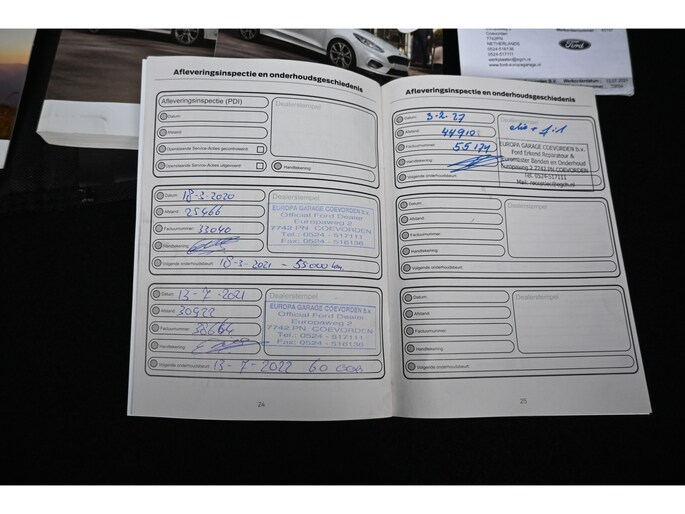 NETHERLANDS
0524-517111
Ford
Afleveringsinspectie en onderhoudsgeschiedenis
Afleveringsinspectie (PDI)
Dealerstempel
Datum
Afstand
Openstaande Service-Acties gecontroleerd
Openstaande Service-Acties uitgevoerd
Handtekening
Datum 18-3-2020
Afstand 25466
Factuurnummer 33040
Handtekening
Volgende onderhoudsbeurt 18-3-2021 - 55000 km
Dealerstempel
EUROPA GARAGE COEVORDEN B.V.
Official Ford Dealer
Europaweg 2
7742 PN COEVORDEN
Tel.: 0524 - 517111
Fax: 0524 - 516136
Datum 13-7-2021
Afstand 30922
Factuurnummer 38664
Handtekening
Volgende onderhoudsbeurt 13-7-2022 60 000
Dealerstempel
EUROPA GARAGE COEVORDEN B.V.
Official Ford Dealer
Europaweg 2
7742 PN COEVORDEN
Tel.: 0524 - 517111
Fax: 0524 - 516136
24
Afleveringsinspectie en onderhoudsgeschiedenis
Datum
Afstand 44910
Factuurnummer 55174
Handtekening
Volgende onderhoudsbeurt
EUROPA GARAGE COEVORDEN B.V.
Ford Erkend Reparateur &
Euromaster Banden en Onderhoud
Europaweg 2 7742 PN COEVORDEN
Tel. 0524-517111
Datum
Afstand
Factuurnummer
Handtekening
Volgende onderhoudsbeurt
Dealerstempel
Datum
Afstand
Factuurnummer
Handtekening
Volgende onderhoudsbeurt
Dealerstempel
25